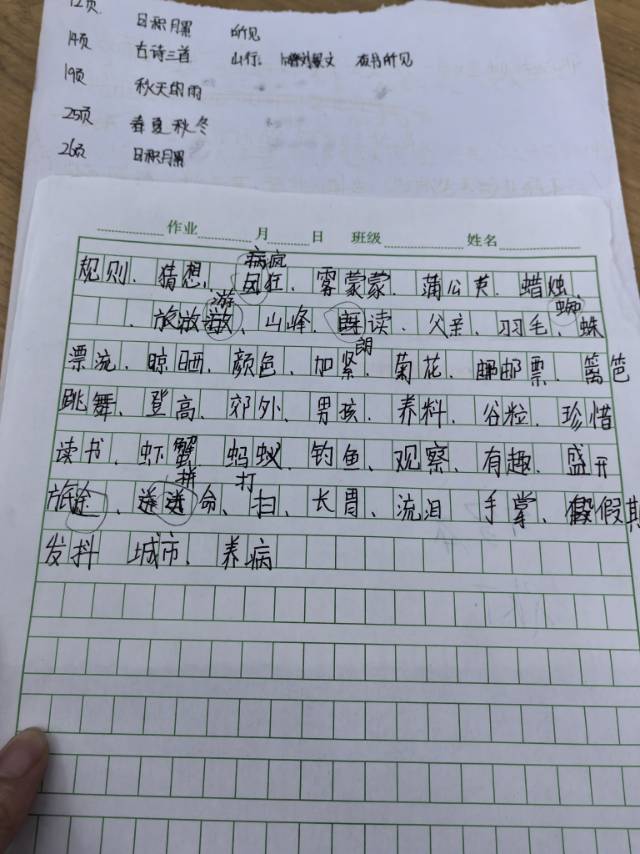 12页 日积月累 所见
14页 古诗三首 山行、 夜书所见
19页 秋天的雨
25页 春夏秋冬
26页 日积月累
作业 月 日 班级 姓名
病疯
规则、猜想、风狂、雾蒙蒙、蒲公英、蜡烛、
游 蜘
旅放、山峰、读、父亲、羽毛、蛛
朗
漂流、晾晒、颜色、加紧、菊花、邮票、篱笆
跳舞、登高、郊外、男孩、养料、谷粒、珍惜
读书、虾蟹 蚂蚁、钓鱼、观察、有趣、盛开
拼 打
旅途、命、扫、长胃、流泪 手掌、假期
发抖 城市、养病